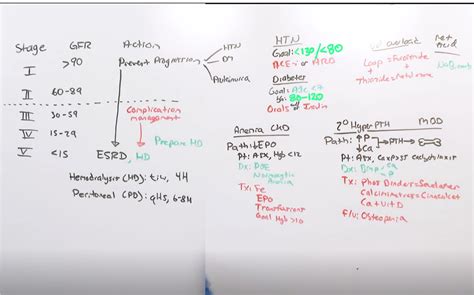 Stage GFR Action
I >90 Prevent Progression
HTN
DM
II 60-89
III 30-59 Complication management
IV 15-29 Prepare HD
V <15 ESRD, HD
Hemodialysis (HD): tiw, 4H
Peritoneal (PD): qHS, 6-8H
HTN
Goal: <130/<80
ACE-i or ARB
Diabetes
Goal: A1C <7
80-120
Orals or Insulin
Vol overload
Loop = Furosemide
+
Met Acid
Anemia CKD
Path: ↓EPO
Pt: ASx, Hgb <12
Normocytic
Anemia
Tx: Fe
EPO
Transfusion
Goal Hgb >10
2° Hyper PTH MOD
Path: ↑P
↓Ca → PTH →
Dx: BMP
Tx: Phos Binders = Sevelamer
Calcimimetics = Cinacalcet
Ca + Vit D
F/u: Osteopenia